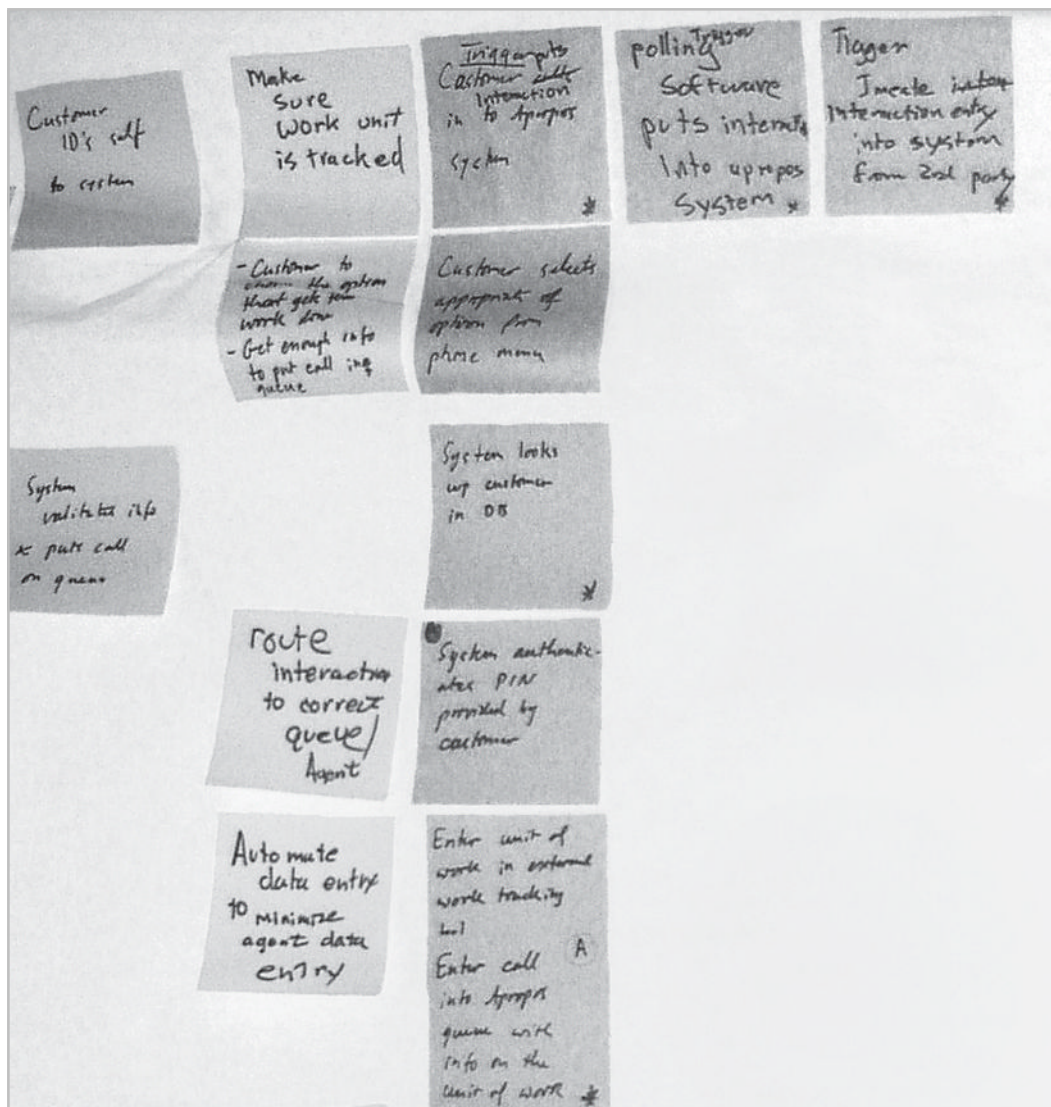 Customer
ID's self
to system
Make
sure
work unit
is tracked
Trigger puts
Customer calls
Interaction
in to Apropos
system
*
polling Trigger
Software
puts interacti
Into apropos
System *
Interaction entry
into system
from 2nd party
*
- Customer to
the option
that gets
work done
- Get enough info
to put call in
queue
Customer selects
appropriate
option from
phone menu
System
validates info
& puts call
on queue
System looks
up customer
in DB
*
route
interaction
to correct
queue/
Agent
System authentic-
ates PIN
provided by
customer
Automate
data entry
to minimize
agent data
entry
Enter unit of
work in external
work tracking
tool
A
Enter call
into Apropos
queue with
info on the
unit of work *